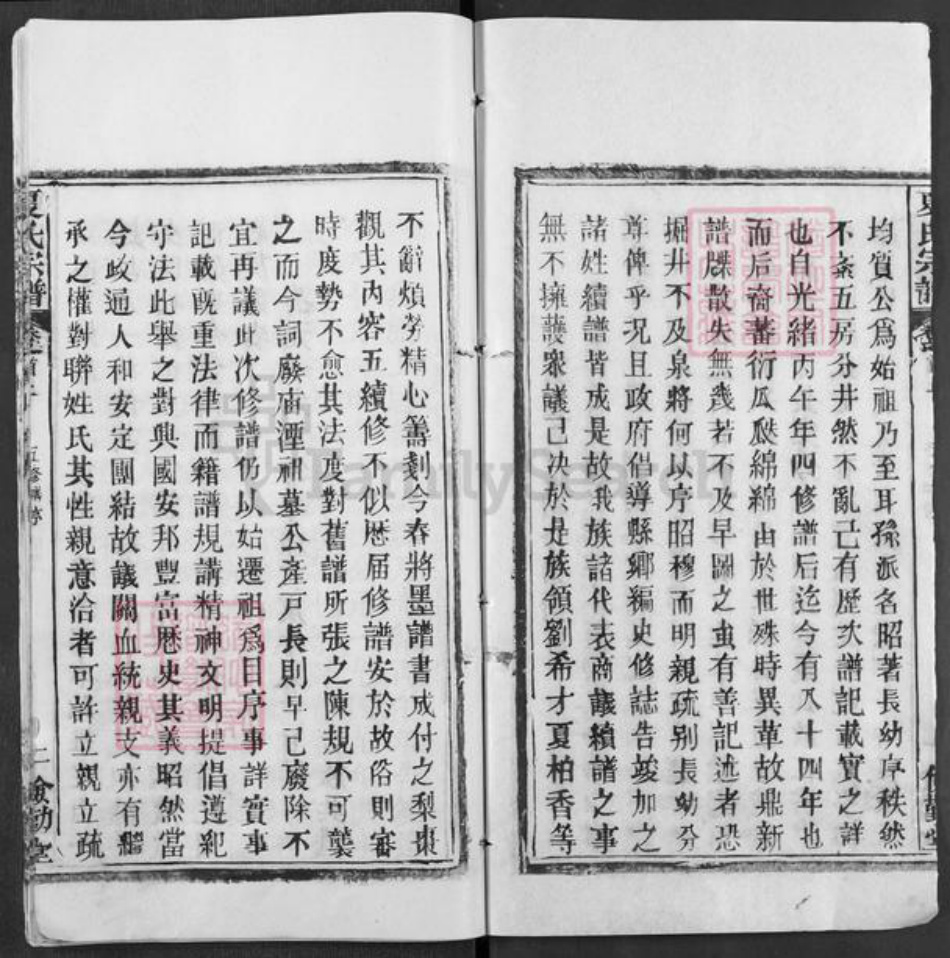 均質公爲始祖乃至耳孫派名昭著長幼序秩然
不紊五房分井然不亂己有歷次譜記載實之詳
也自光緒丙午年四修譜后迄今有八十四年也
而后裔蕃衍瓜瓞綿綿由於世殊時異革故鼎新
譜牒散失無幾若不及早圖之虽有善記述者恐
掘井不及泉將何以序昭穆而明親疏别長幼分
尊俾乎况且政府倡導縣鄉編史修誌告竣加之
諸姓續譜皆成是故我族諸代表商議續諸之事
無不擁護衆議己决於是族領劉希才夏柏香等
不辭煩勞精心籌劃今春將墨譜書成付之梨棗
觀其内容五續修不似歷届修譜安於故俗則審
時度勢不愈其法度對舊譜所張之陳規不可襲
之而今詞廢庙湮祖墓公產戸長則早己廢除不
宜再議此次修譜仍以始遷祖爲目序事詳實事
記載既重法律而籍譜規講精神文明提倡遵紀
守法此舉之對興國安邦豐富歷史其義昭然當
今政通人和安定團結故議關血統親支亦有繼
承之權對聯姓氏其性親意洽者可許立親立疏
夏氏宗譜
卷首
五修
二
儉勤堂
FamilySearch